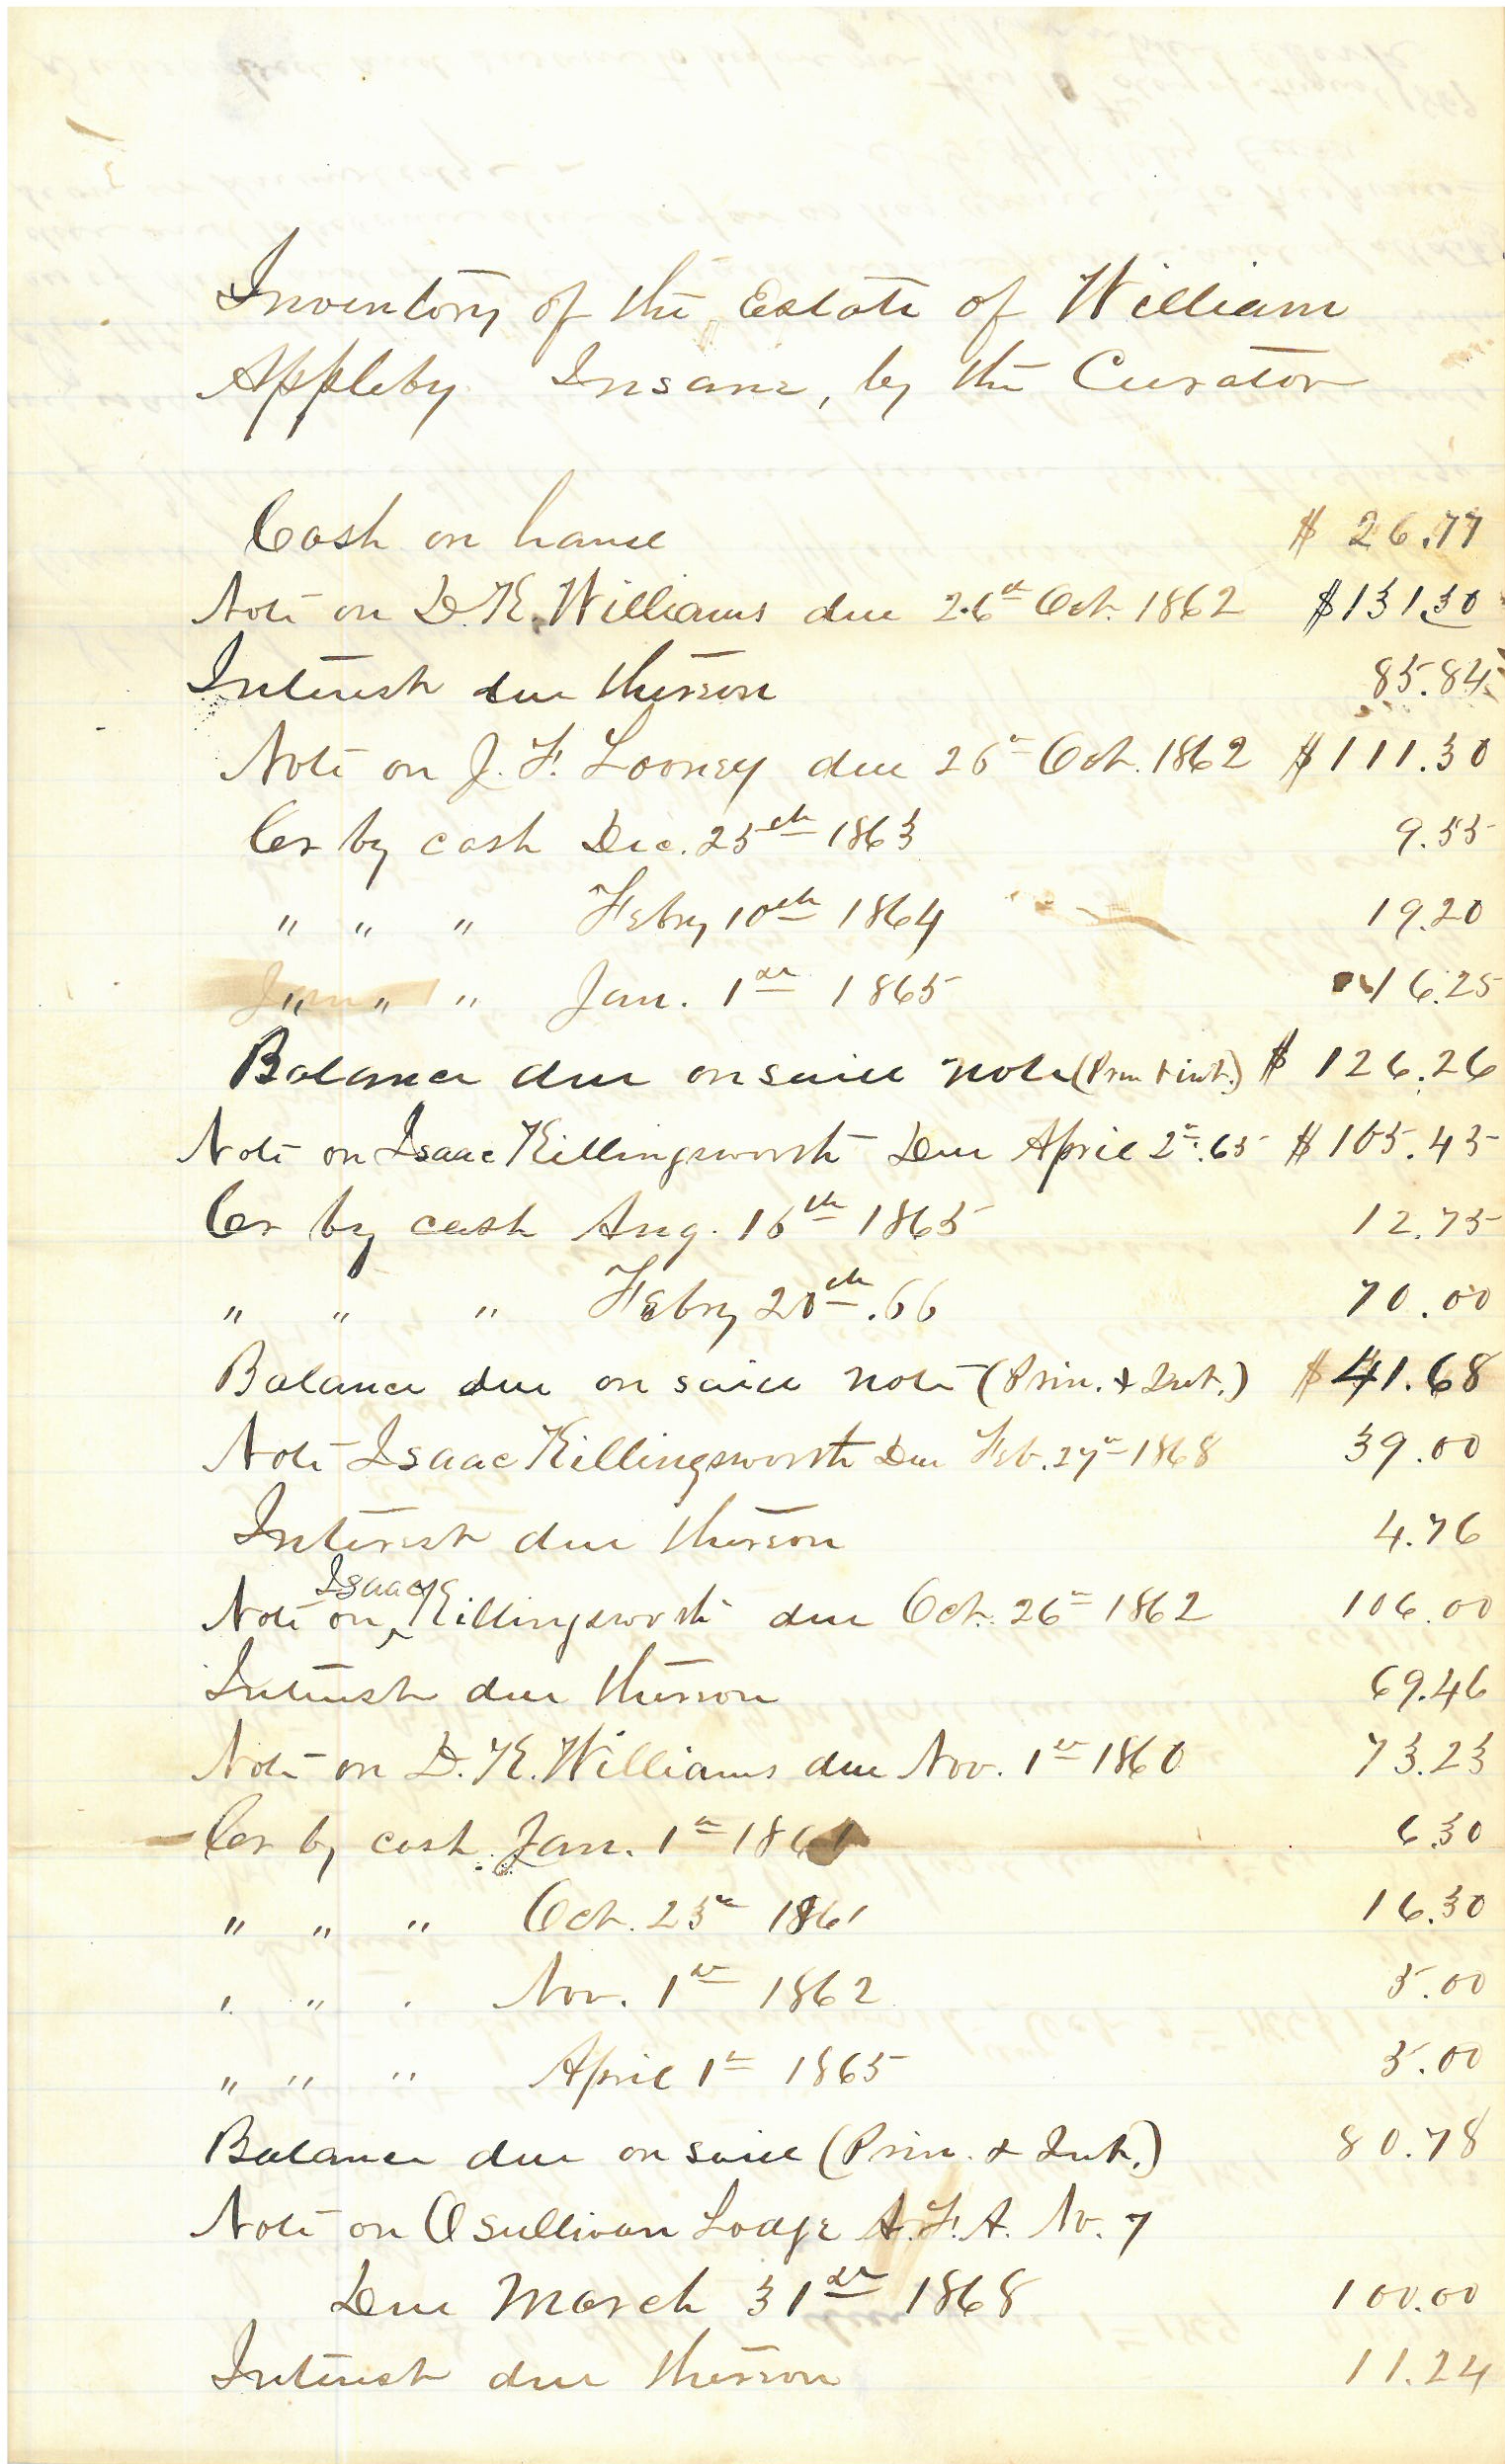 Inventory of the Estate of William
Appleby Insane, by the Curator
Cash on hand $ 26.77
Note on D. K. Williams due 26th Oct. 1862 $131.30
Interest due thereon 85.84
Note on J. F. Looney due 26th Oct. 1862 $111.30
Cr by cash Dec. 25th 1863 9.55
" " " Febry 10th 1864 19.20
" " " Jan. 1st 1865 16.25
Balance due on said note (Prin & int.) $ 126.26
Note on Isaac Killingsworth Due April 2d. 65 $105.45
Cr by cash Aug. 16th 1865 12.75
" " " Febry 20th .66 70.00
Balance due on said note (Prin. & Int.) $41.68
Note Isaac Killingsworth Due Feb. 27th 1868 39.00
Interest due thereon 4.76
Note on Isaac Killingsworth due Oct. 26th 1862 106.00
Interest due thereon 69.46
Note on D. K. Williams due Nov. 1st 1860 73.23
Cr by cash Jan. 1st 1861 6.30
" " " Oct. 25th 1861 16.30
" " " Nov. 1st 1862 5.00
" " " April 1st 1865 5.00
Balance due on said (Prin. & Int.) 80.78
Note on OSullivan Lodge A. F. A. No. 7
Due March 31st 1868 100.00
Interest due thereon 11.24